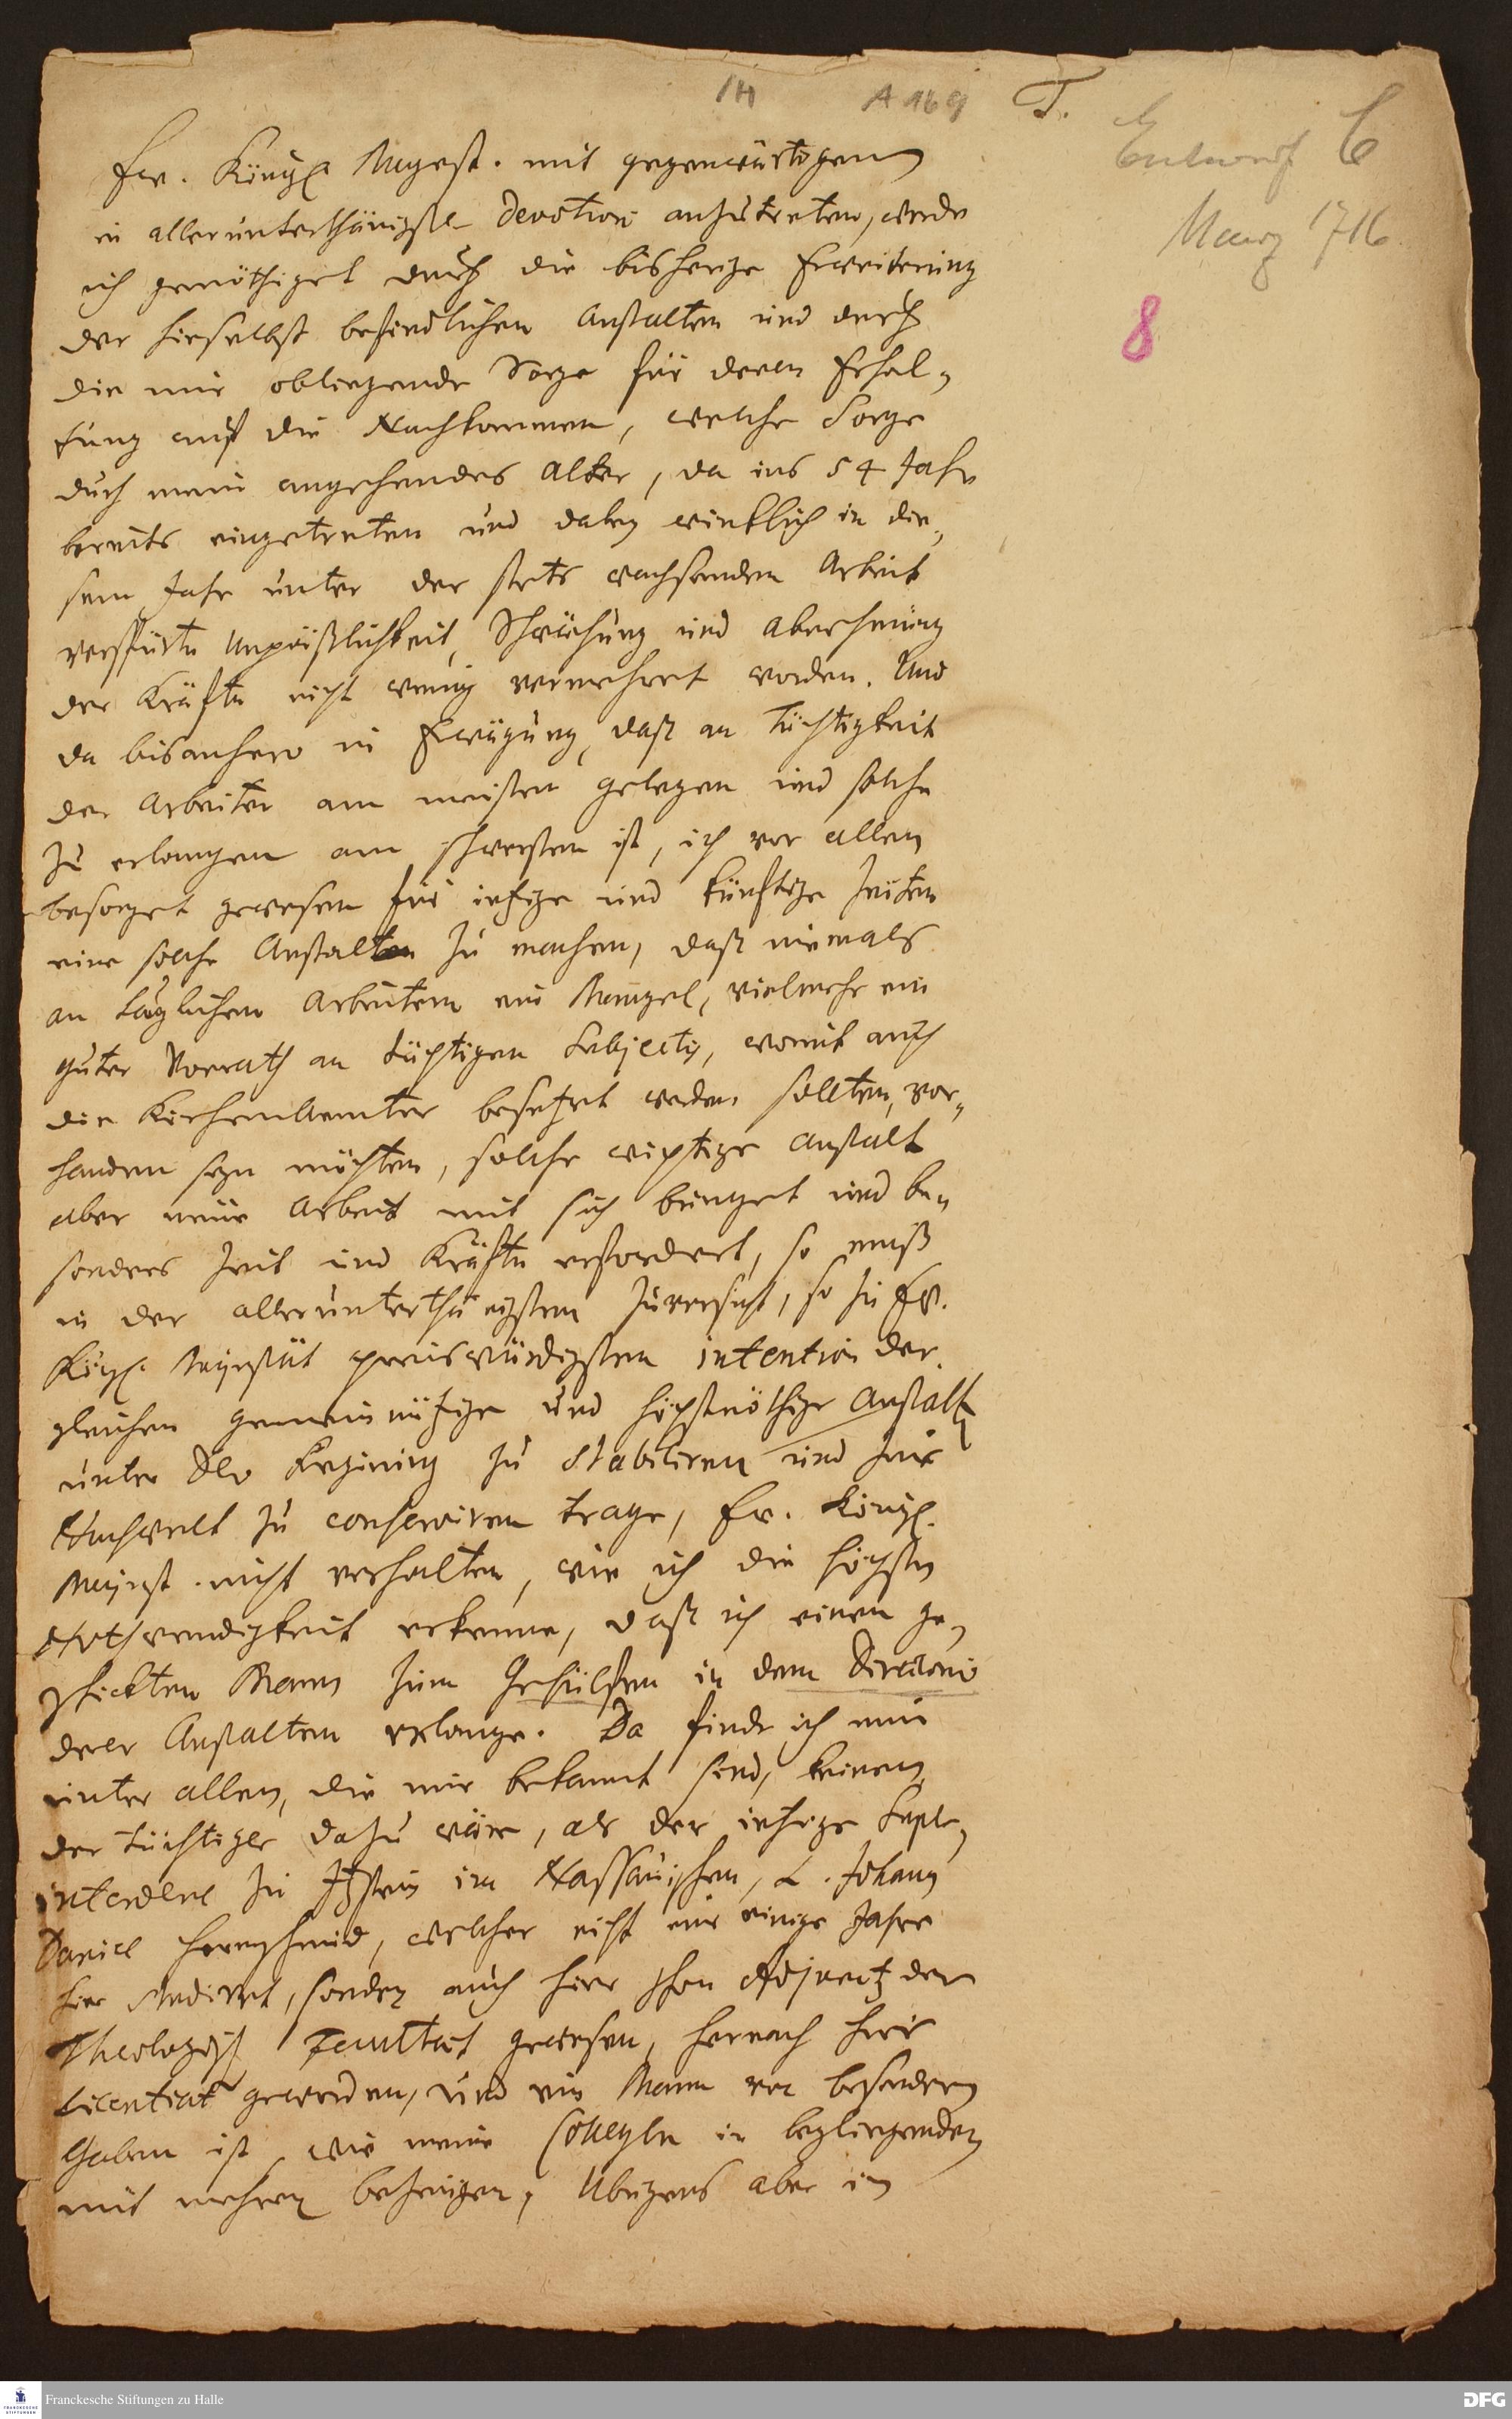 14 A 169 T.
Entwurf C
Maerz 1716.
8
Ew. Königl. Mayest. mit gegenwärtigem
in allerunterthänigster Devotion anzutreten, werde
ich genöthiget durch die bisherige Erweiterung
der hieselbst befindlichen Anstalten und durch
die mir obliegende Sorge für deren Erhal-
tung auf die Nachkommen, welche Sorge
durch mein angehendes Alter, da ins 54 Jahr
bereits eingetreten und dabey wirklich in die-
sem Jahr unter der stets wachsenden Arbeit
verspürte Unpäßlichkeit, Schwächung und Abnehmung
der Kräfte nicht wenig vermehret worden. Und
da bisanhero in Erwägung, daß an Tüchtigkeit
der Arbeiter am meisten gelegen und solche
zu erlangen am schwersten ist, ich vor allen
besorget gewesen für jetzige und künftige Zeiten
eine solche Anstalten zu machen, daß niemals
an tüglichen Arbeitern ein Mangel, vielmehr ein
guter Vorrath an tüchtigen Subjectis, womit auch
die KirchenAemter besetzet werden sollten, vor-
handen seyn möchten, solche wichtige Anstalt
aber neue Arbeit mit sich bringet und be-
sonders Zeit und Kräfte erfordert, so muß
in der allerunterthänigsten Zuversicht, so zu Ew.
Königl. Majestät preiswürdigsten intention der-
gleichen gemeinnützige und höchstnöthige Anstalten
unter Dero Regirung zu stabiliren und zur
Nachwelt zu conserviren trage, Ew. Königl.
Majest. nicht verhalten, wie ich die höchste
Nothwendigkeit erkenne, daß ich einen ge-
schickten Mann zum Gehülfen in dem Directorio
derer Anstalten erlange. Da finde ich nun
unter allen, die mir bekannt sind, keinen,
der tüchtiger dazu wäre, als der jetzige Supe-
intendent zu Itzstein im Nassauischen, L. Johann
Daniel Herrnschmid, welcher nicht nur einige Jahre
hier studiret, sondern auch hier schon Adjunctus der
Theologisch Facultät gewesen, hernach hier
Licentiat geworden, und ein Mann von besondern
Gaben ist, wie meine Collegen in beyliegenden
mit mehren bezeugen, Ubrigens aber im
Franckesche Stiftungen zu Halle
DFG